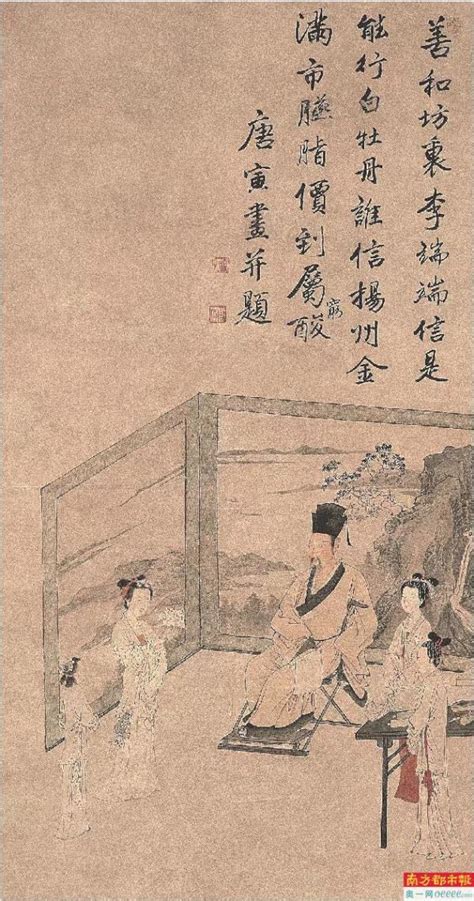 善和坊裏李端端信是
能行白牡丹誰信揚州金
滿市臙脂價到屬窮酸
唐寅畫并題
南方都市報
奥一网oeeee.com